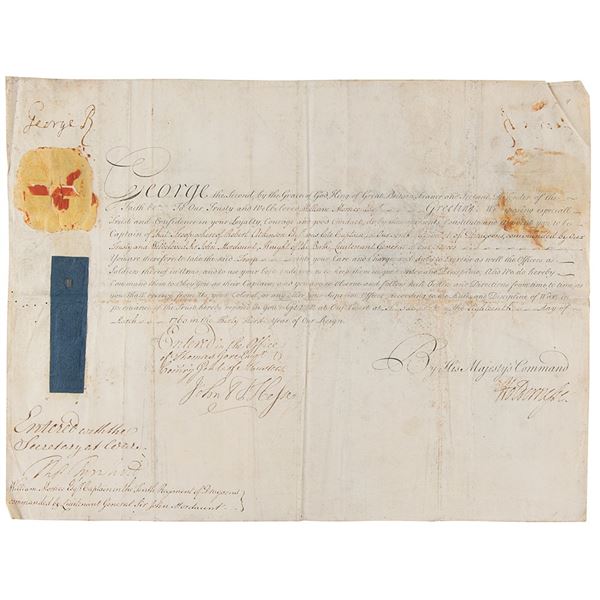 George R
George the Second, by the Grace of God King of Great Britain, France and Ireland, Defender of the
Faith &c. To Our Trusty and Welbeloved William Esqr. Greeting. reposing especiall
Trust and Confidence in your Loyalty, Courage and good Conduct, do by these presents Constitute and Appoint you to be
Captain of that Troop whereof Robert Atkinson Esqr. was late Captain, in Our Regiment of Dragoons, commanded by Our
Trusty and Welbeloved Sir John Mordaunt, Knight of the Bath, Lieutenant General of our Forces
You are therefore to take the said Troop into your Care and Charge and duly to Exercise as well the Officers as
Soldiers thereof in Arms, and to use your best endeavours to keep them in good Order and Discipline, And We do hereby
Command them to Obey you as their Captain, and you are to observe and follow such Orders and Directions from time to time, as
you shall receive from Us, your Colonel, or any other your Superior Officer, according to the Rules and Discipline of War, in
pursuance of the Trust hereby reposed in You. Given at Our Court at St. the Eighteenth Day of
March 1760 in the Thirty Third Year of Our Reign.
Entered in the Office
of Thomas Gore Esqr.
Comry. Genl. of Musters
John
By His Majesty's Command
Entered with the
Secretary at War
William Esqr. Captain in the Regiment of Dragoons
commanded by Lieutenant General Sir John Mordaunt